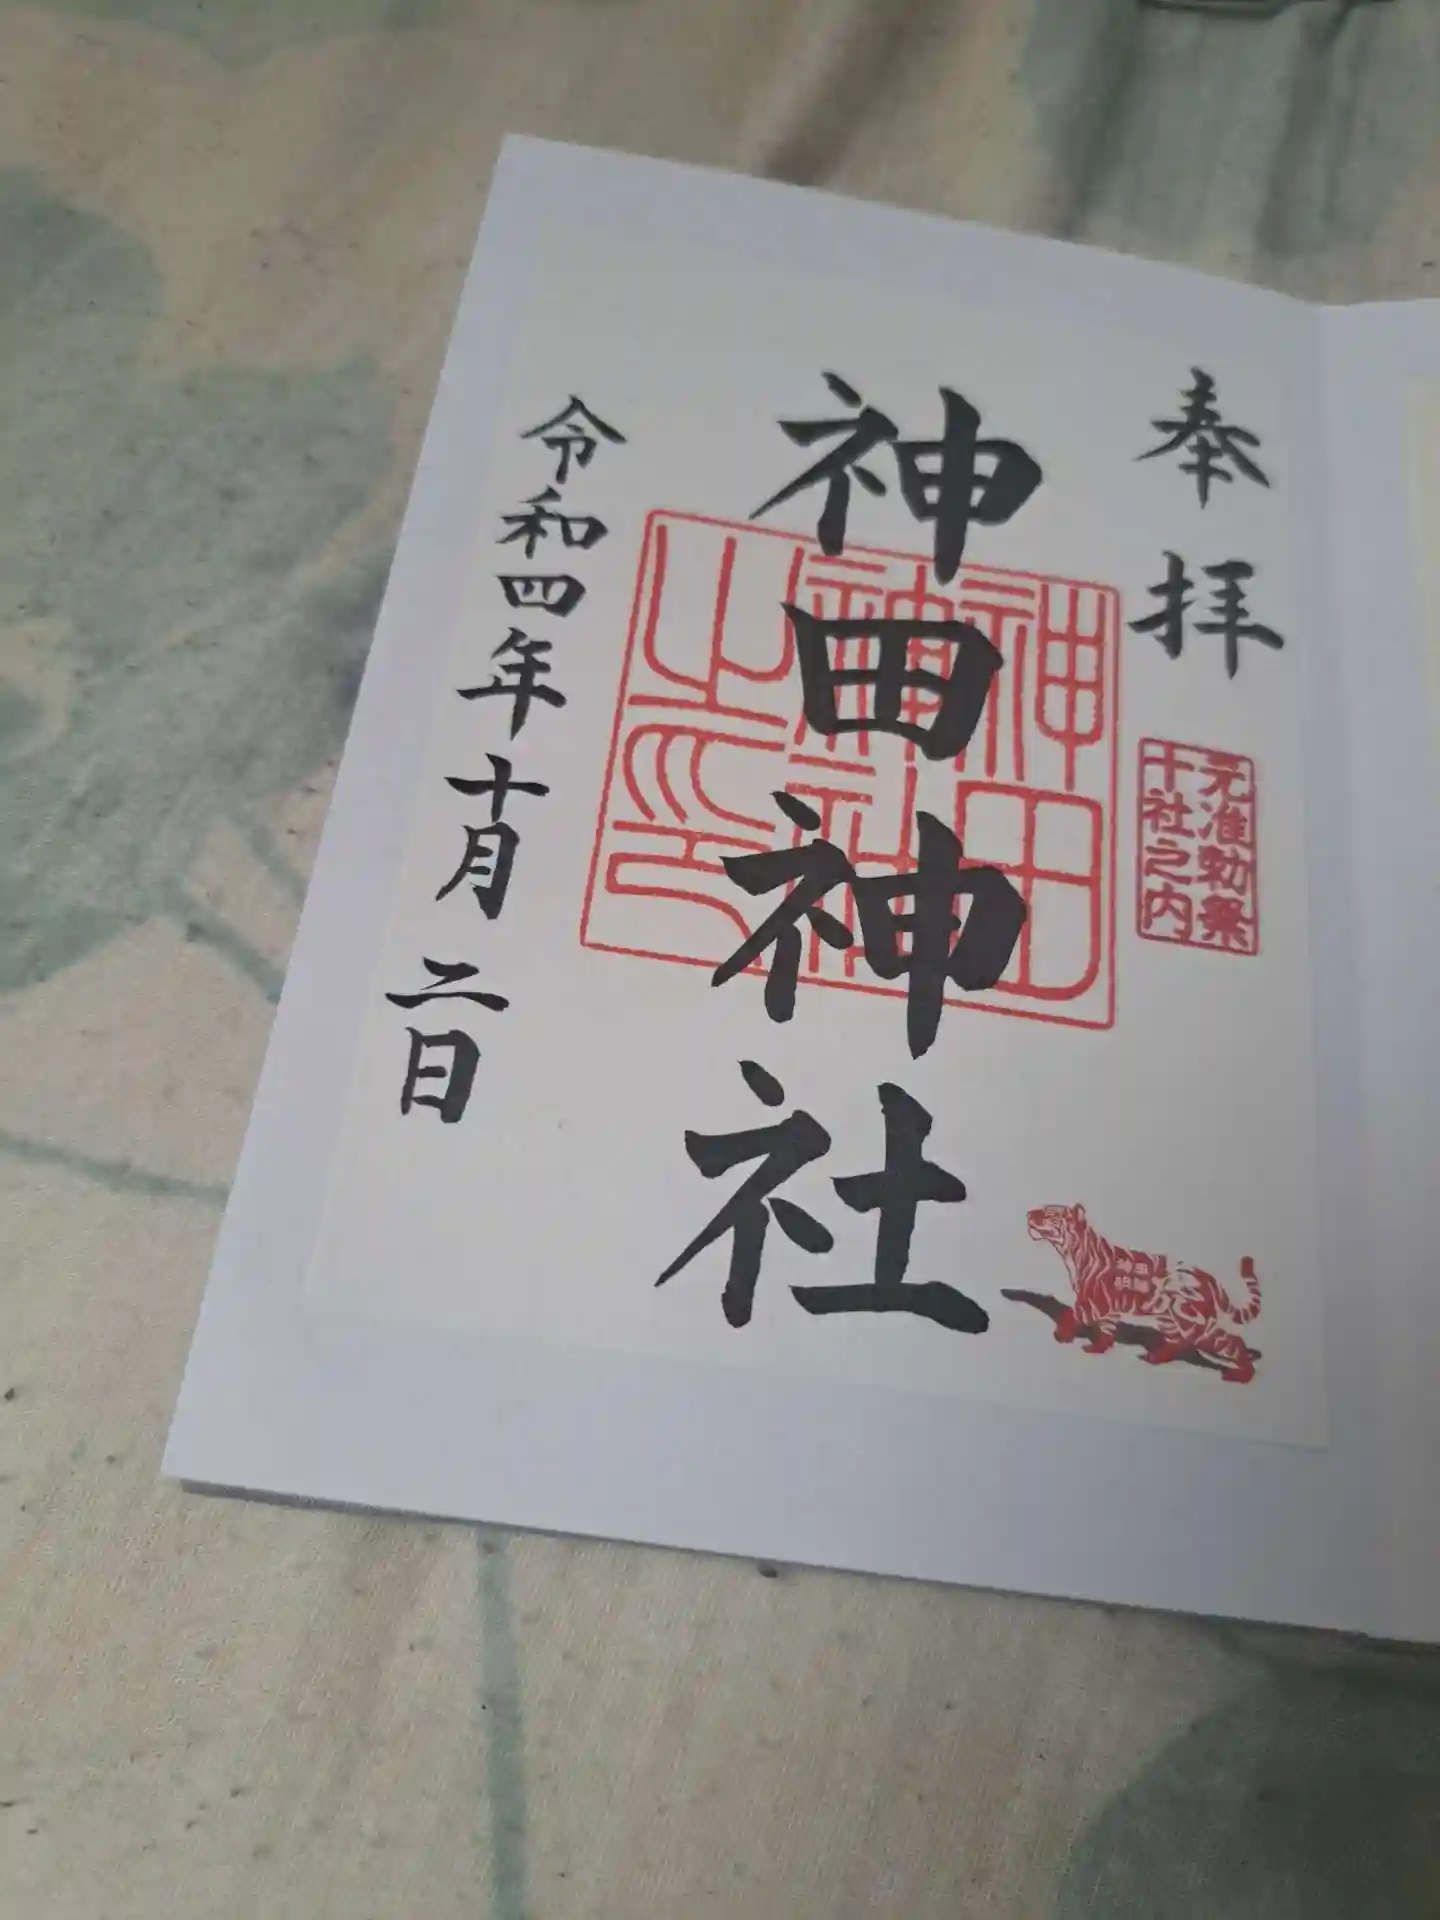 奉拝
元准勅祭
十社之内
神田神社
神田
神社
之印
令和四年十月二日